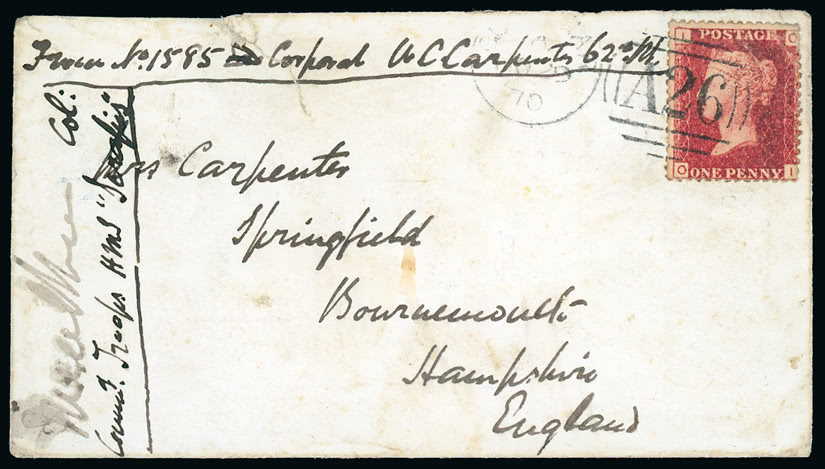 From No. 1585 Corporal W C Carpenter 62nd Rt
Mrs Carpenter
Springfield
Bournemouth
Hampshire
England
Col:
Comm.g Troops HMS "Serapis"
70
A26
POSTAGE
ONE PENNY
I O
O I